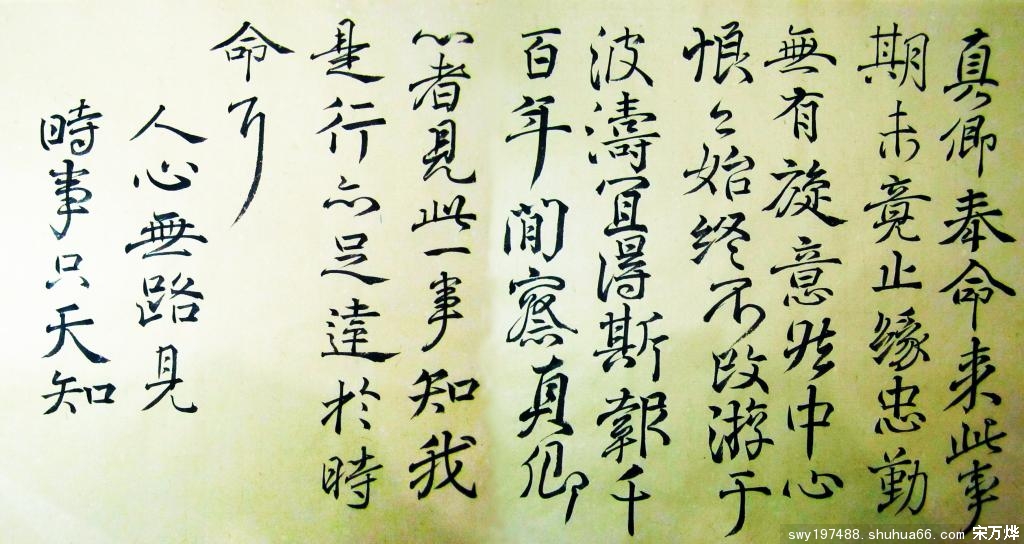 真卿奉命来此事
期未竟止緣忠勤
無有旋意然中心
恨々始終不改游于
波濤宜得斯報千
百年間察真卿
心者見此一事知我
是行亦足達於時
命耳
人心無路見
時事只天知
swy197488. shuhua66. com 宋万烨